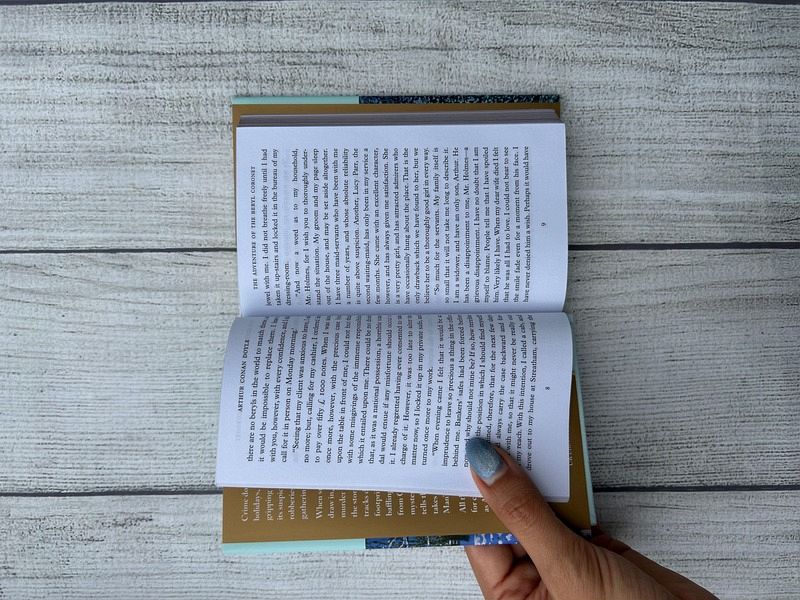 ARTHUR CONAN DOYLE
there are no beryls in the world to match these,
it would be impossible to replace them. I
with you, however, with every confidence, and
call for it in person on Monday morning.'
"Seeing that my client was anxious to
no more; but, calling for my cashier, I
to pay over fifty £ 1000 notes. When I was
once more, however, with the precious
upon the table in front of me, I could not
with some misgivings of the immense
which it entailed upon me. There could be no
that, as it was a national possession, a horrible
dal would ensue if any misfortune should
it. I already regretted having ever consented to
charge of it. However, it was too late to
matter now, so I locked it up in my private safe
turned once more to my work.
"When evening came I felt that it would be
imprudence to leave so precious a thing in the
behind me. Bankers' safes had been forced before
why should not mine be? If so, how
the position in which I should find
therefore, that for the next few
always carry the case backward and
with me, so that it might never be really
my reach. With this intention, I called a cab, and
drove out to my house at Streatham, carrying the
8
THE ADVENTURE OF THE BERYL CORONET
jewel with me. I did not breathe freely until I had
taken it up-stairs and locked it in the bureau of my
dressing-room.
"And now a word as to my household,
Mr. Holmes, for I wish you to thoroughly under-
stand the situation. My groom and my page sleep
out of the house, and may be set aside altogether.
I have three maid-servants who have been with me
a number of years, and whose absolute reliability
is quite above suspicion. Another, Lucy Parr, the
second waiting-maid, has only been in my service a
few months. She came with an excellent character,
however, and has always given me satisfaction. She
is a very pretty girl, and has attracted admirers who
have occasionally hung about the place. That is the
only drawback which we have found to her, but we
believe her to be a thoroughly good girl in every way.
"So much for the servants. My family itself is
so small that it will not take me long to describe it.
I am a widower, and have an only son, Arthur. He
has been a disappointment to me, Mr. Holmes—a
grievous disappointment. I have no doubt that I am
myself to blame. People tell me that I have spoiled
him. Very likely I have. When my dear wife died I felt
that he was all I had to love. I could not bear to see
the smile fade even for a moment from his face. I
have never denied him a wish. Perhaps it would have
9
Crime
holidays,
gripping
its
robberie
gathering
When
draw in
murder
the
tracks
footpr
baffling
from
myste
tells
takes
All
for
as